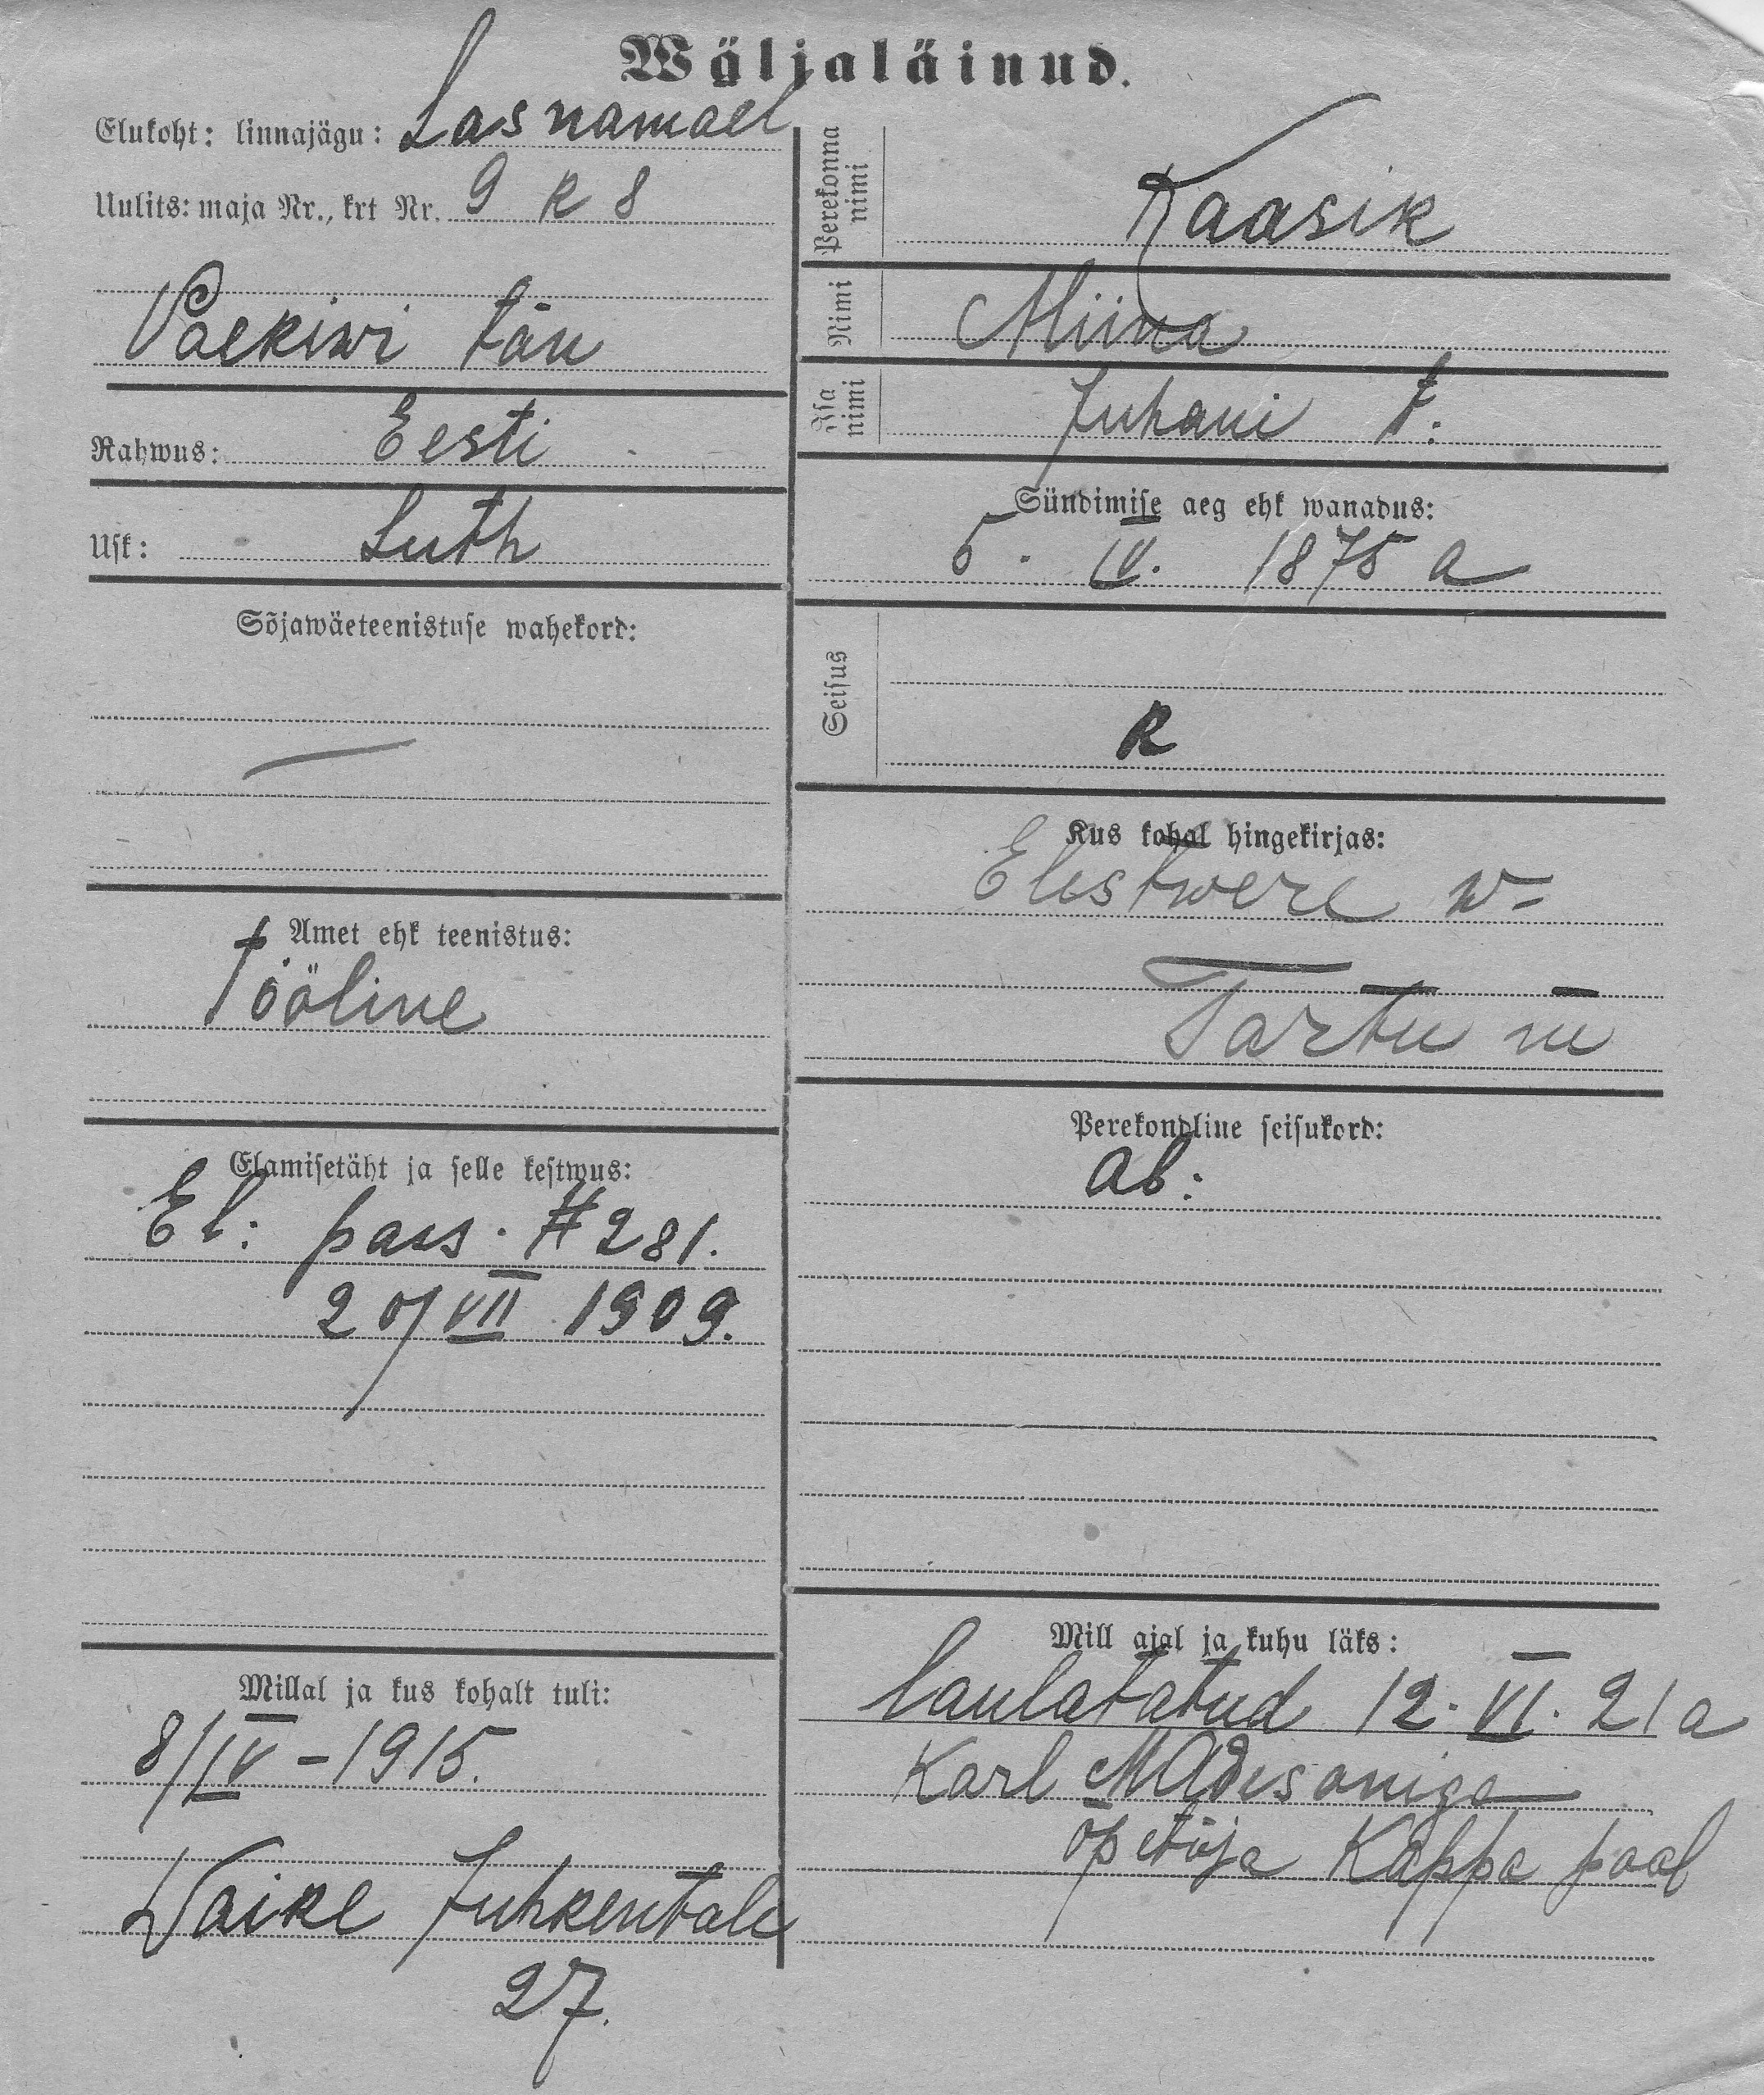 Wäljaläinud.
Elukoht: linnajägu: Lasnamael
Uulits: maja Nr., krt Nr. 9 k 8
Paekiwi tän
Rahwus: Eesti
Usk: Luth
Sõjawäeteenistuse wahekord:
—
Amet ehk teenistus:
Tööline
Elamisetäht ja selle kestwus:
El: pass. # 281.
20/VII 1909.
Millal ja kus kohalt tuli:
8/IV - 1915.
Waike Juhkentale
27.
Perekonna nimi Kaasik
Nimi Miina
Isa nimi Juhani t.
Sündimise aeg ehk wanadus:
5. IV. 1875 a
Seisus
R
Kus kohal hingekirjas:
Elistwere w-
Tartu m
Perekondline seisukord:
ab:
Mill ajal ja kuhu läks:
laulatatud 12. VI. 21 a
Karl Madisoniga
õpetaja Kappa pool